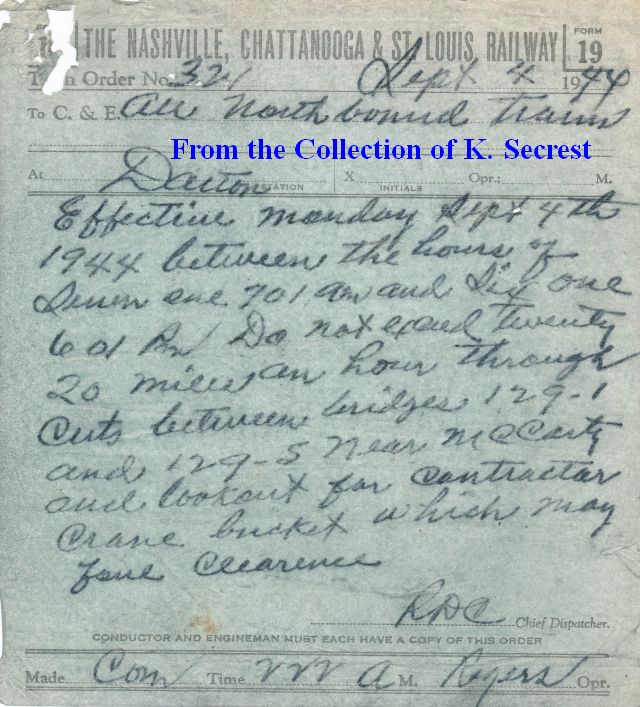 THE NASHVILLE, CHATTANOOGA & ST. LOUIS RAILWAY FORM 19
Train Order No. 321 Sept 4 1944
To C. & E. All North bound trains
From the Collection of K. Secrest
At Dalton STATION X INITIALS Opr.; M.
Effective monday Sept 4th
1944 between the hours of
Seven one 701 am and Six one
601 Pm Do not exceed twenty
20 miles an hour through
Cuts between bridges 129-1
and 129-5 Near McCarty
and lookout for contractor
Crane bucket which may
foul Clearence
RDC Chief Dispatcher.
CONDUCTOR AND ENGINEMAN MUST EACH HAVE A COPY OF THIS ORDER
Made Com Time A M. Rogers Opr.